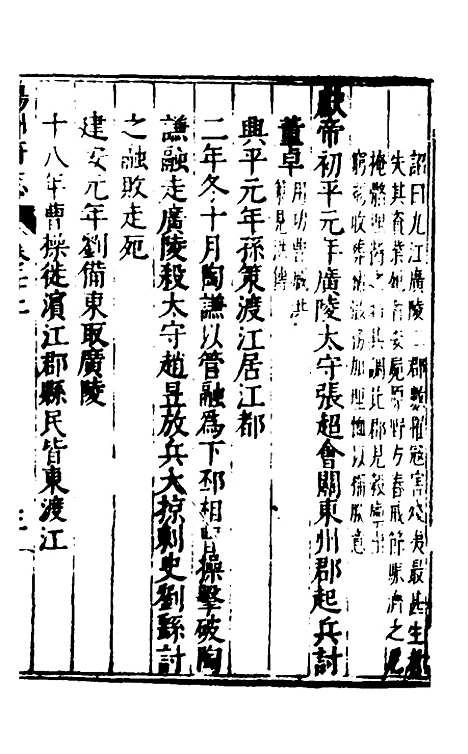 詔曰九江廣陵二郡數離寇害殘夷最甚生者
失其資業死者委屍原野方春戒節賑濟之
掩骼埋胔之時其調比郡見穀出
窮弱收葬枯骸務加埋恤以稱朕意
獻帝初平元年廣陵太守張超會關東州郡起兵討
董卓
興平元年孫策渡江居江都
二年冬十月陶謙以管融為下邳相曹操擊破陶
謙融走廣陵殺太守趙昱放兵大掠刺史劉繇討
之融敗走死
建安元年劉備東取廣陵
十八年曹操徙濱江郡縣民皆東渡江